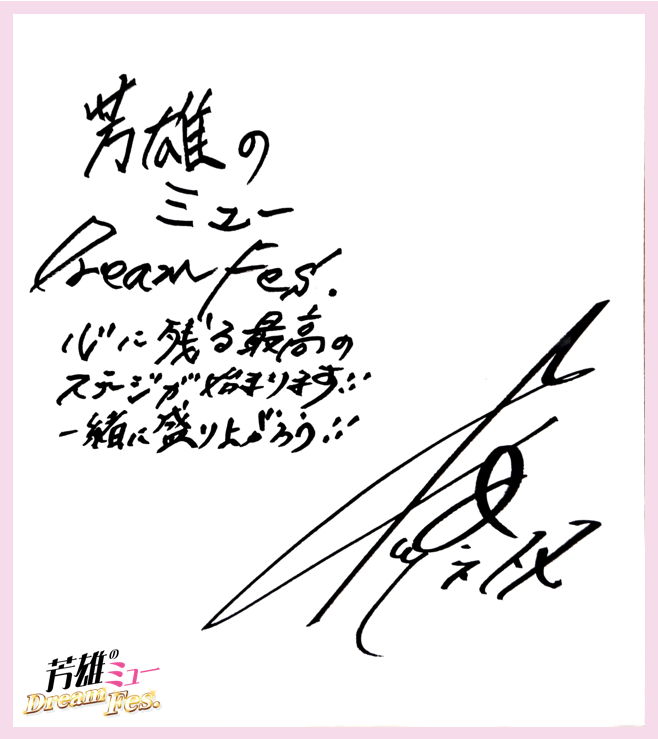 芳雄の
ミュー
Dream Fes.
心に残る最高の
ステージが始まります!!
一緒に盛り上がろう!!
芳雄のミュー
Dream Fes.